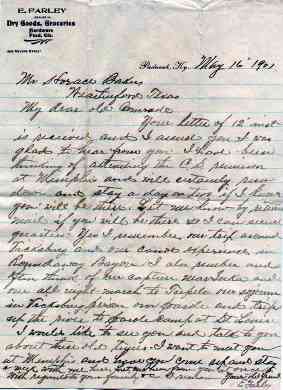 E. FARLEY
DEALER IN
Dry Goods, Groceries
Hardware
Feed, Etc.
Paducah, Ky. May 16 1901
Mr Horace
Weatherford Texas
My dear old Comrade
Your letter of 12" inst
is received and I assure you I was
glad to hear from you. I have been
thinking of attending the C.S. reunion
at Memphis and will certainly run
down and stay a day or two if I know
you will be there. Let me know by return
mail if you will be there so I can secure
quarters. Yes I remember our trip around
Vicksburg and our canoe experience in
Bayou. I also remember and
often think of our capture near
and our all night march to Tupelo our
in Vicksburg prison our parole and trip
up the river to parole camp at St Louis
I would like to see you and talk to you
about those old times. I want to meet you
at Memphis and have you come up and stay
a week with me here
With regards to your family
Farley